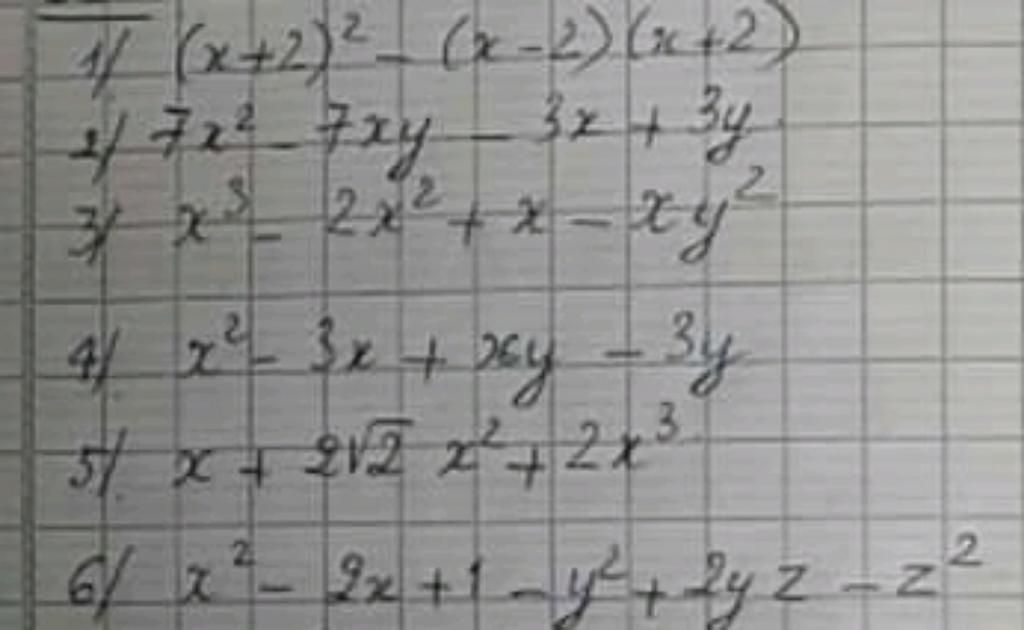 1/ (x+2)² - (x-2)(x+2)
2/ 7x² - 7xy - 3x + 3y
3/ x³ - 2x² + x - xy²
4/ x² - 3x + xy - 3y
5/ x + 2√2 x² + 2x³
6/ x² - 2x + 1 - y² + 2yz - z²